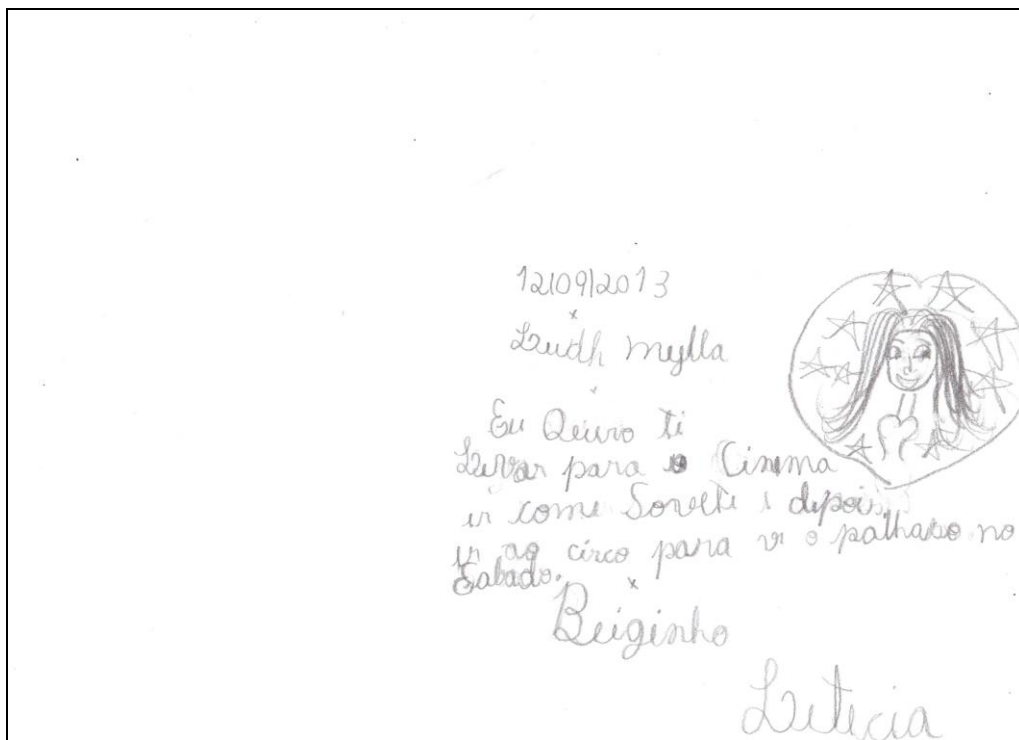 12/09/2013
Ludh mylla
Eu Qeuro ti
Levar para o Cinema
ir come Sorvete e depois
ir ao circo para ve o palhaso no
Sabado.
Beiginho
Leticia